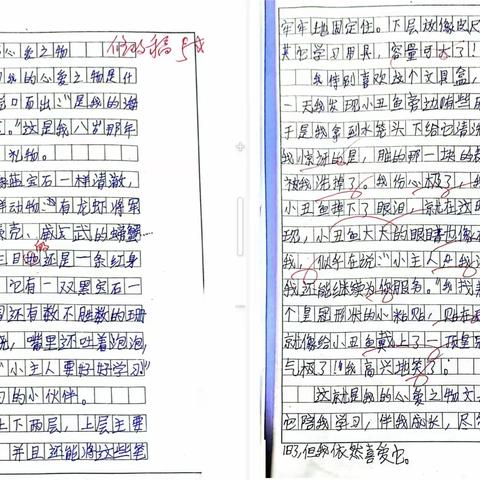 心爱之物
修改稿
我的心爱之物是什
口而出:“是我的海
。”这是我八岁那年
礼物。
蓝宝石一样清澈,
动物:有龙虾将军
克、威武的螃蟹…
目的还是一条红身
它有一双黑宝石一
还有数不胜数的珊
,嘴里还吐着泡泡,
“小主人要好好学习”
的小伙伴。
上下两层,上层主要
并且还能将这些笔
牢牢地固定住。下层放像皮尺
其它学习用具,容量可大了!
我特别喜欢这个文具盒,
一天我发现小丑鱼旁边有些
于是我拿到水笼头下给它清洗
我惊讶的是,脏的那一块的
被我洗掉了。我伤心极了,
小丑鱼掉下了眼泪,就在这时
现,小丑鱼大大的眼睛也像在
我,似乎在说:“小主人
我还能继续为你服务。”我找
个皇冠形状的小粘贴,贴在
就像给小丑鱼戴上了一顶皇
气极了!我高兴地笑了。
这就是我的心爱之物文
它陪我学习,伴我成长,尽
旧了,但我依然喜爱它。